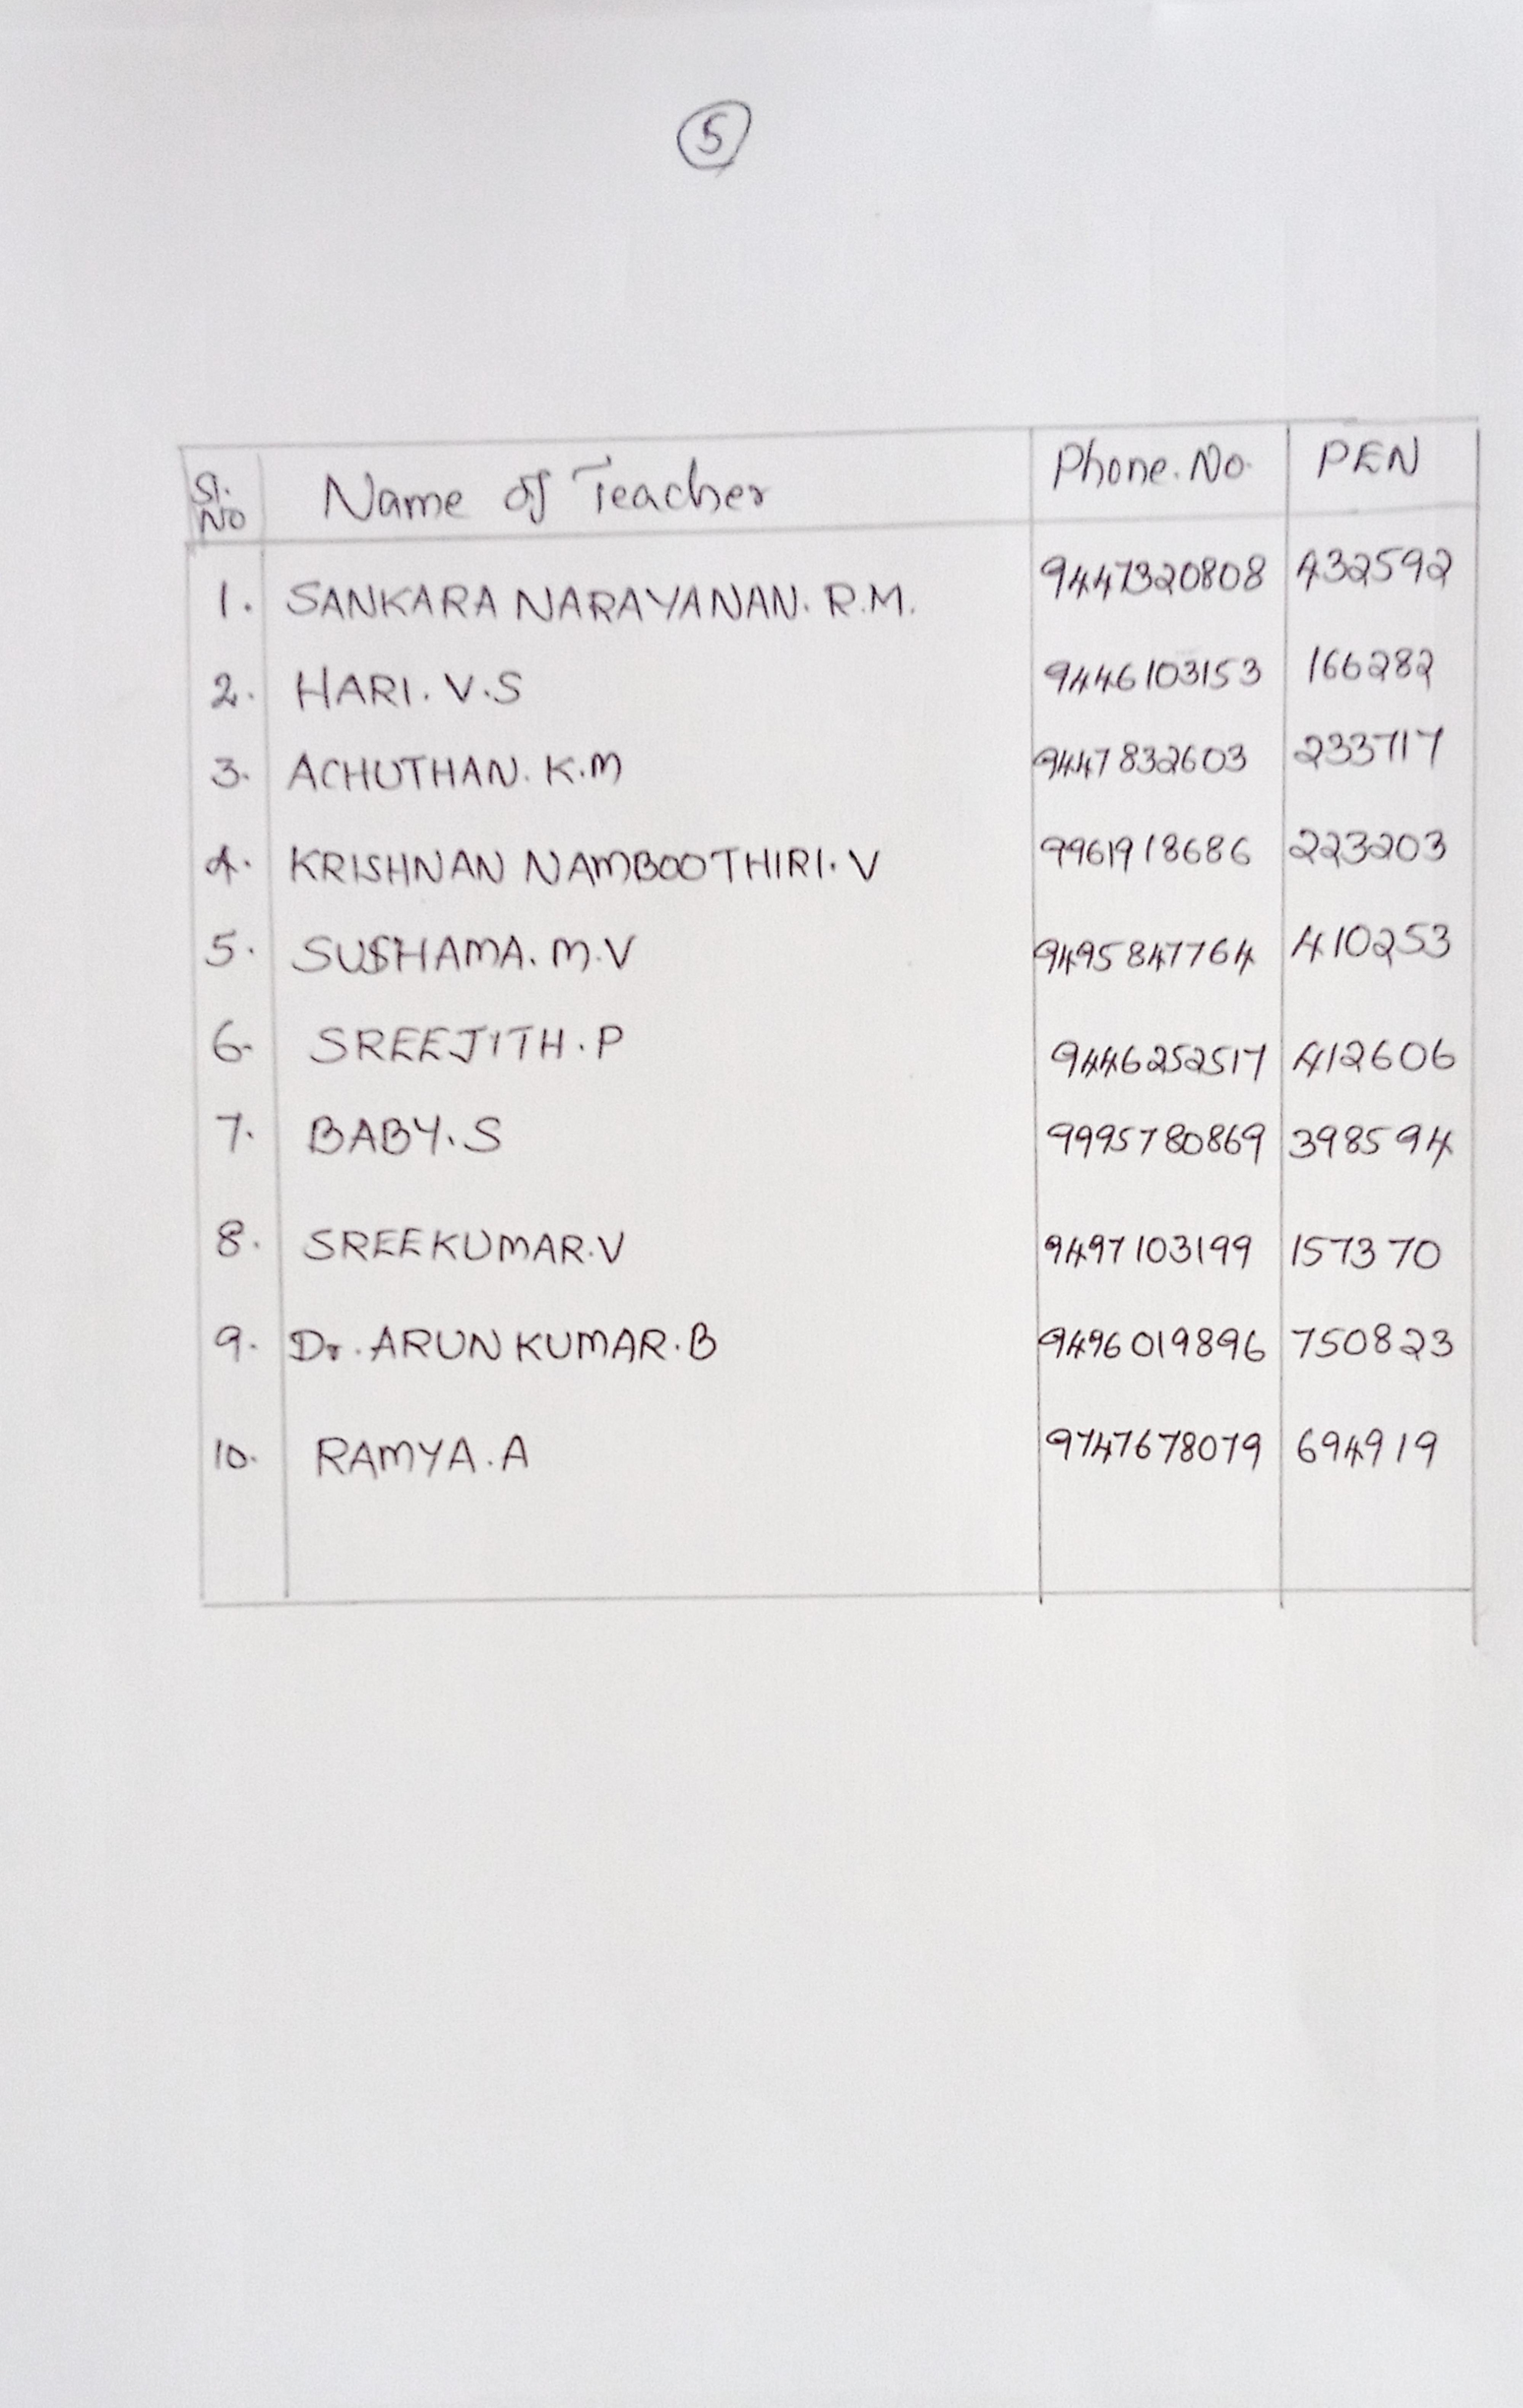 5
Sl. No Name of Teacher Phone. No. PEN
1. SANKARA NARAYANAN. R.M. 9447320808 432592
2. HARI. V.S 9446103153 166282
3. ACHUTHAN. K.M 9447832603 233717
4. KRISHNAN NAMBOOTHIRI. V 9961918686 223203
5. SUSHAMA. M.V 9495847764 410253
6. SREEJITH. P 9446252517 412606
7. BABY. S 9995780869 398594
8. SREEKUMAR. V 9497103199 157370
9. Dr. ARUN KUMAR. B 9496019896 750823
10. RAMYA. A 9747678079 694919